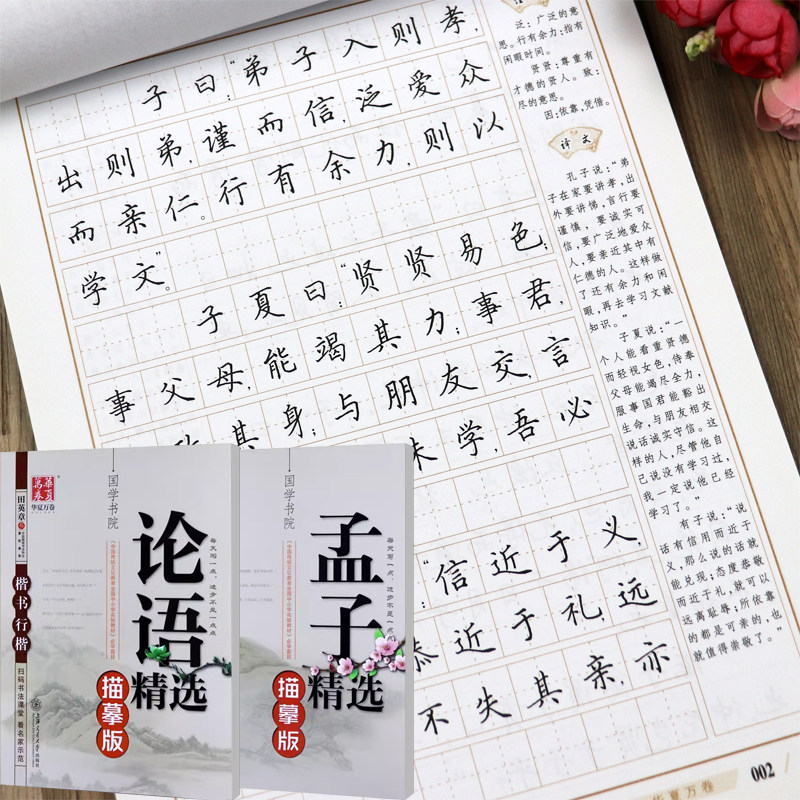 子曰：“弟子入则孝，
出则弟，谨而信，泛爱众
而亲仁。行有余力，则以
学文”。
子夏曰：“贤贤易色；
事父母，能竭其力；事君，
其身；与朋友交，言
未学，吾必
“信近于义，
恭近于礼，远
不失其亲，亦
泛：广泛的意
思。行有余力：指有
闲暇时间。
贤贤：尊重有
才德的贤人。致：
尽的意思。
因：依靠，凭借。
译文
孔子说：“弟
子在家要讲孝，出
外要讲悌，言行要
谨慎，要诚实可
信，要广泛地爱众
人，要亲近其中有
仁德的人。这样做
了还有余力和闲
暇，再去学习文献
知识。”
子夏说：“一
个人能看重贤德
而轻视女色，侍奉
父母能竭尽全力，
服事国君能豁出
生命，与朋友相交
说话诚实守信。这
样的人，尽管他自
己说没有学习过，
我一定说他已经
学习了。”
有子说：“说
话有信用而近于
义，那么说的话就
能兑现；态度恭敬
而近于礼，就可以
远离耻辱；所依靠
的都是可亲的，也
就值得崇敬了。”
002
华夏万卷
華夏萬卷
华夏万卷
田英章
楷书行楷
扫码书法课堂 看名家示范
上海交通大学出版社
国学书院
论语
精选
描摹版
每天写一点，进步不是一点点
国学书院
孟子
精选
描摹版
每天写一点，进步不是一点点